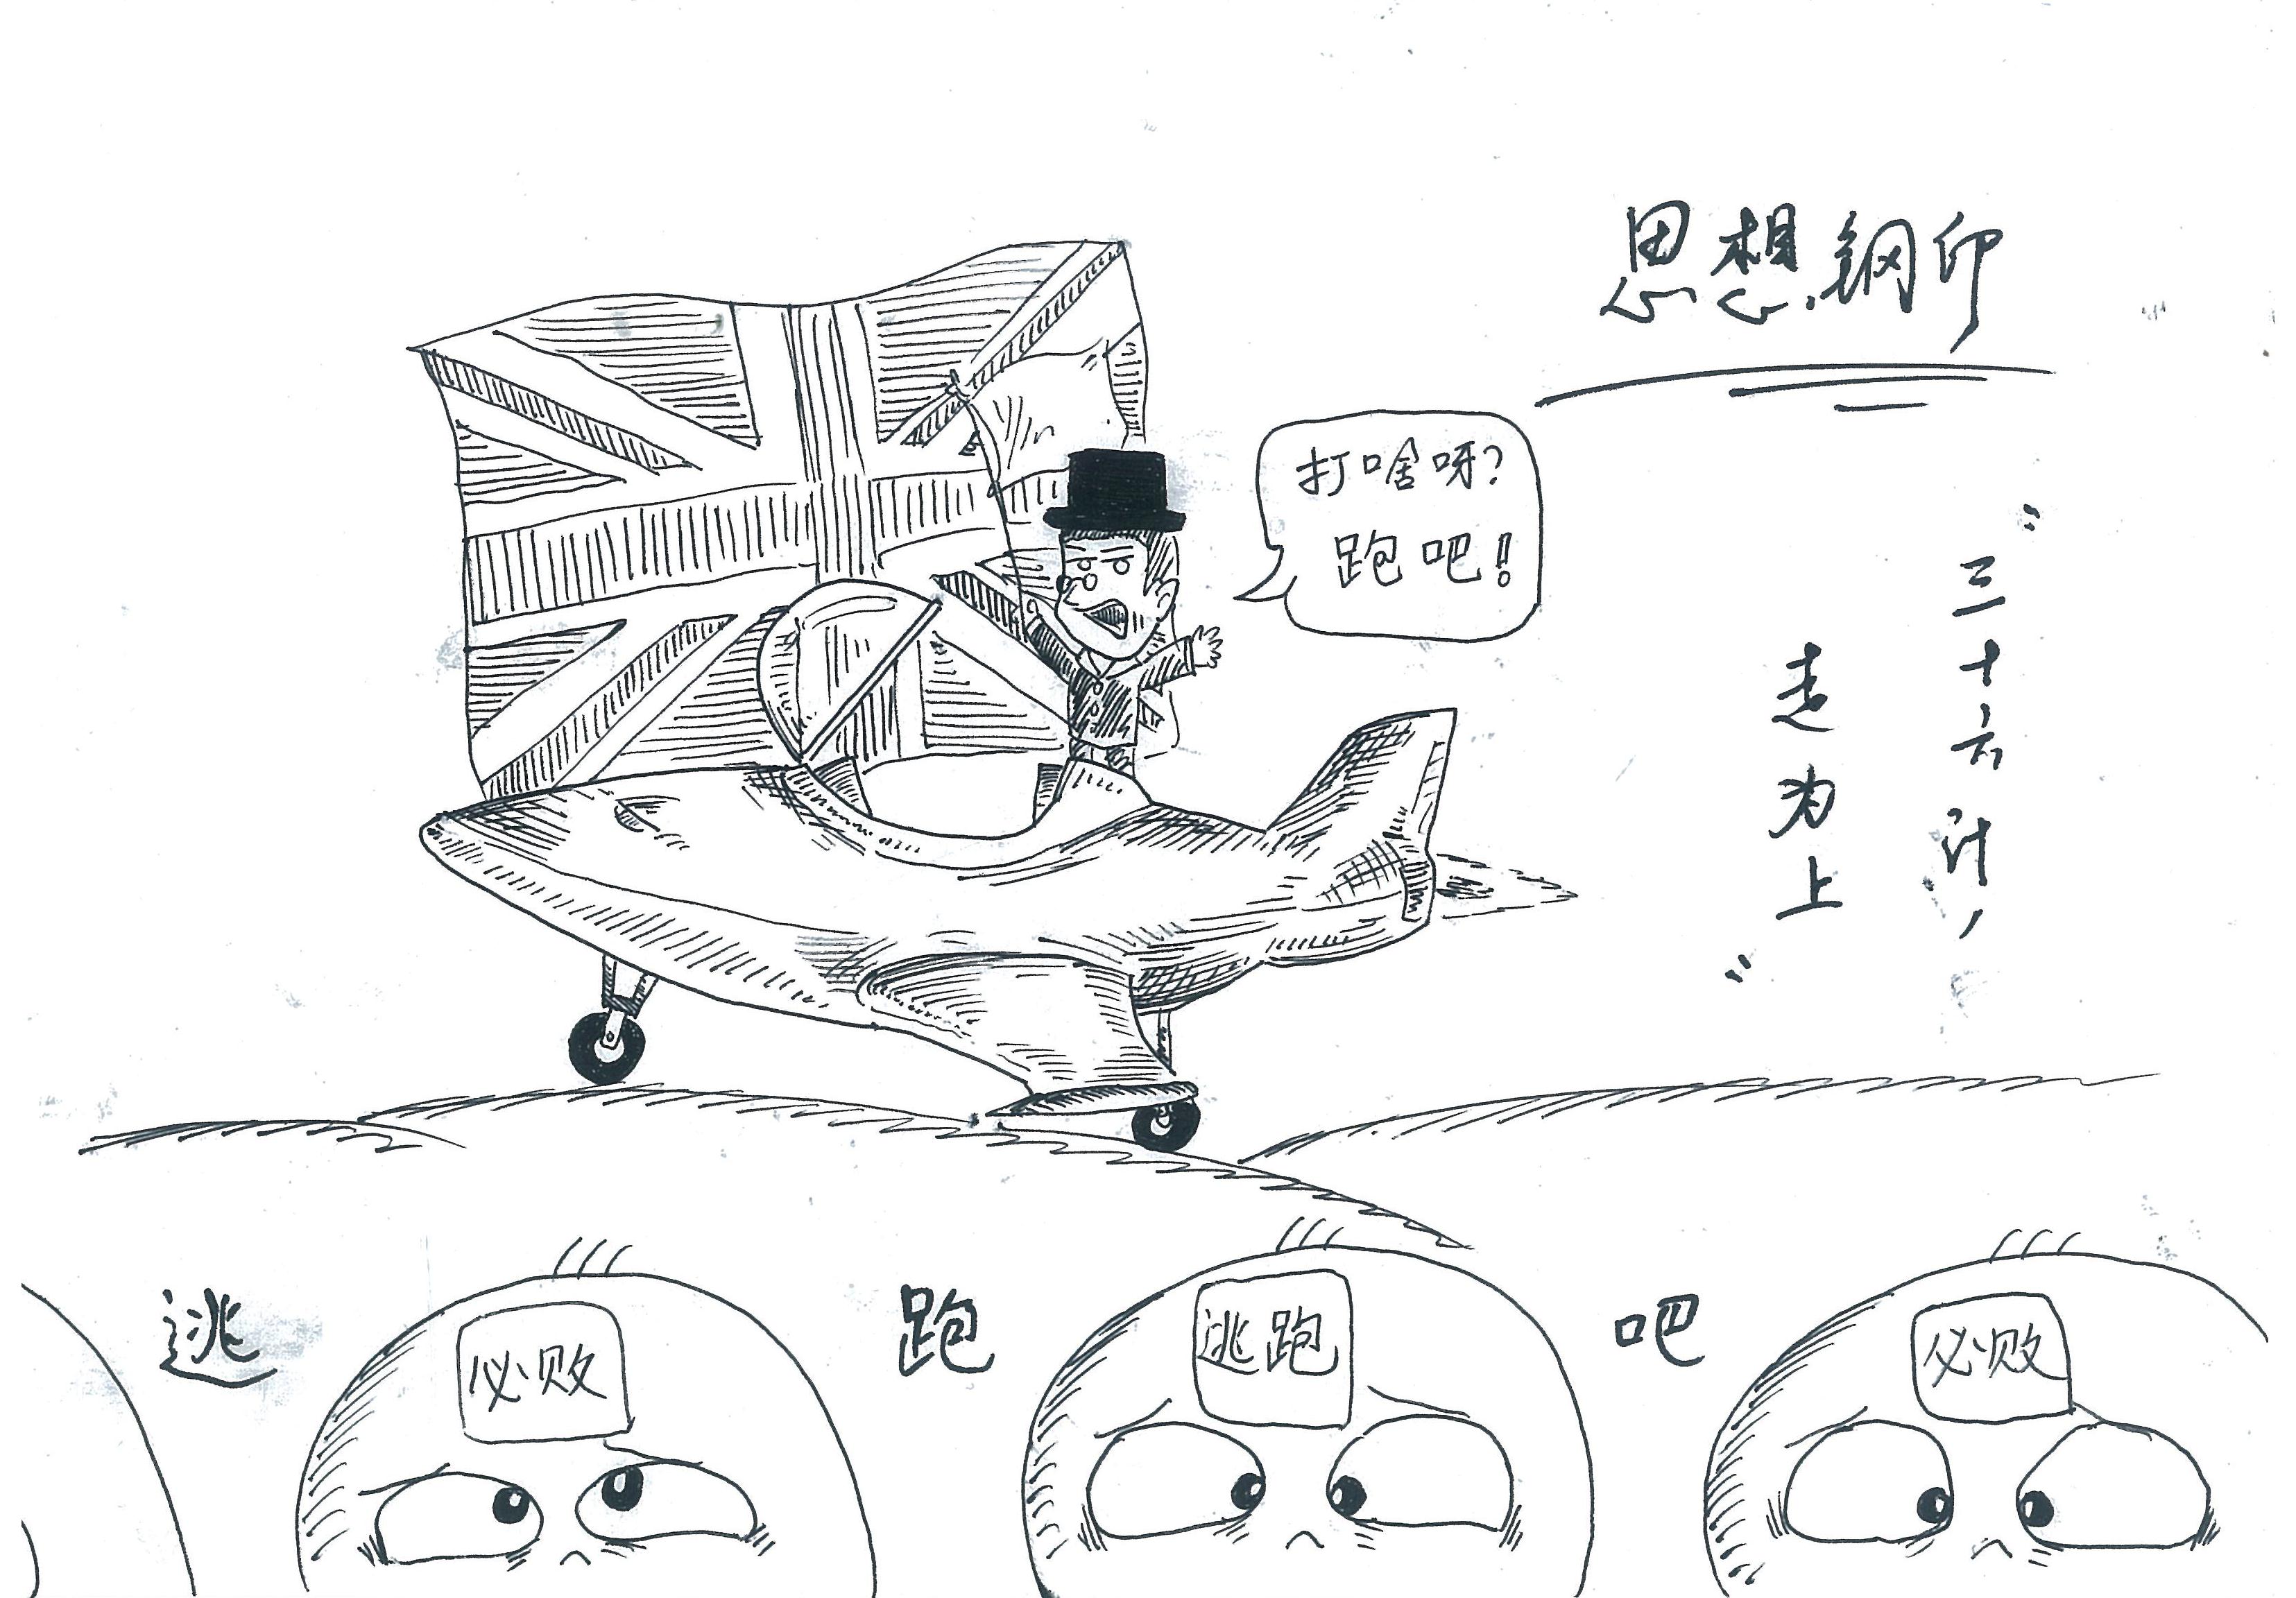 思想钢印
打啥呀?
跑吧!
"三十六计,
走为上"
逃 跑 吧
必败
逃跑
必败